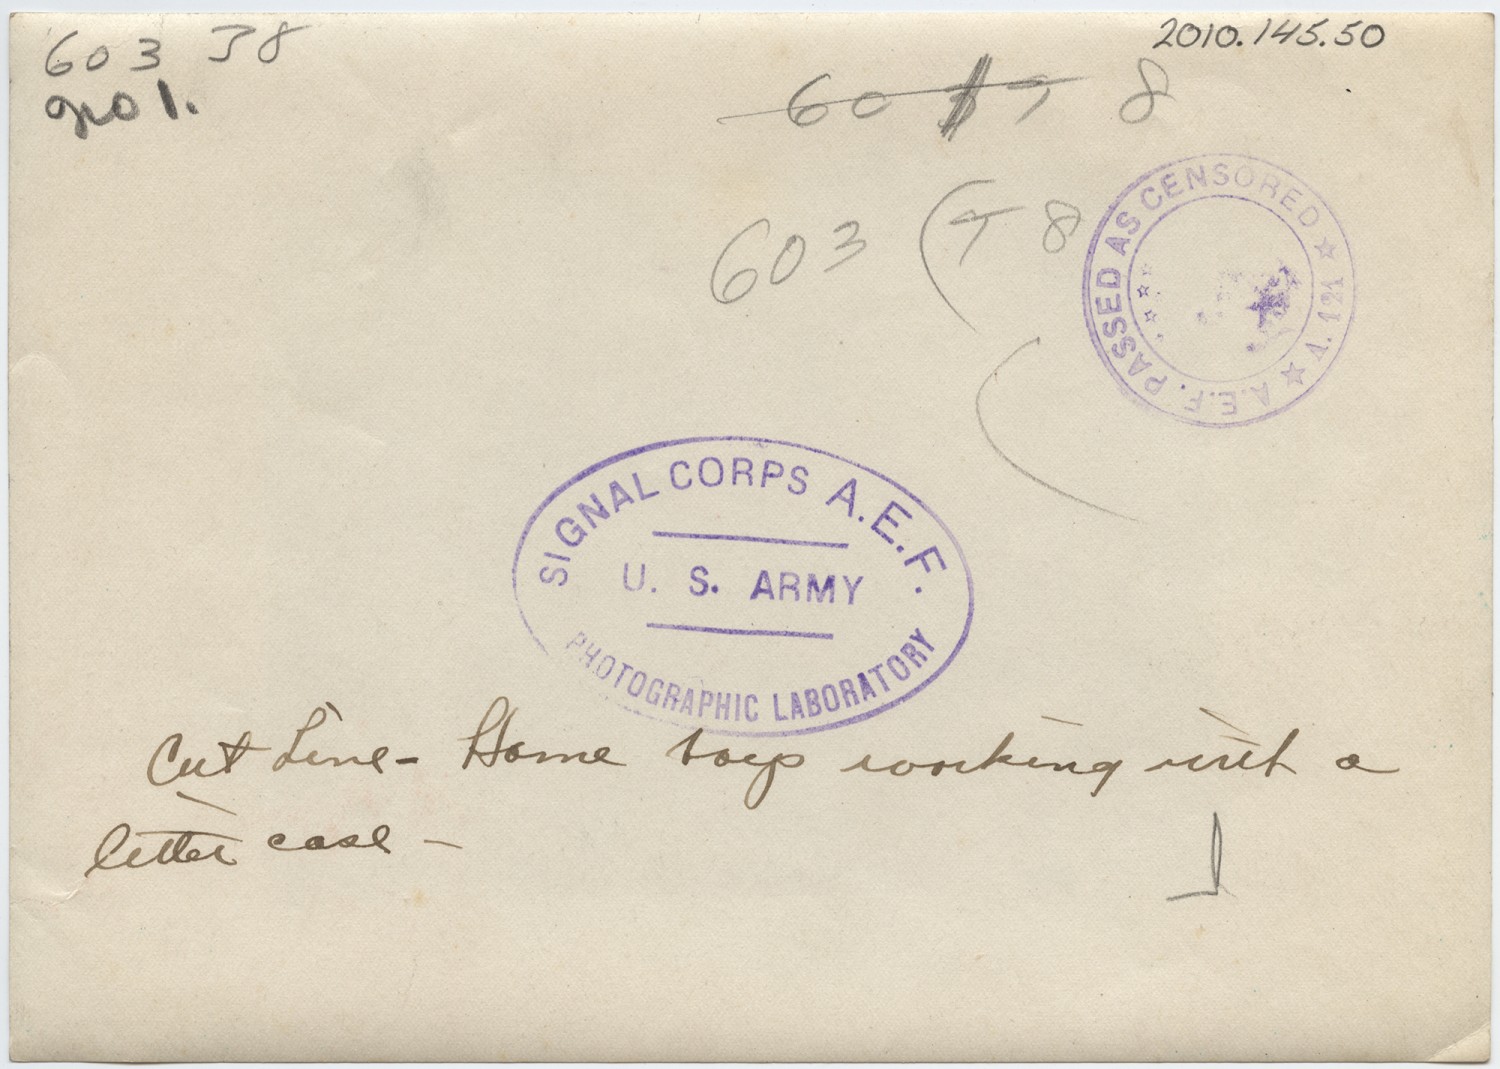 603 78
No 1.
2010.145.50
60 7 8
603 (78
A.E.F. PASSED AS CENSORED ★ A. 121 ★
SIGNAL CORPS A.E.F.
U. S. ARMY
PHOTOGRAPHIC LABORATORY
Cut Line - Some boys working with a
letter case -